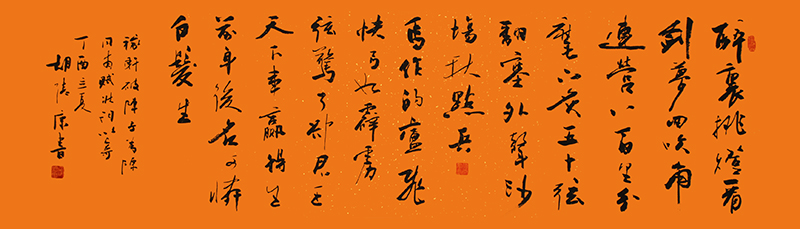 醉裏挑燈看
劍夢回吹角
連營八百里分
麾下炙五十弦
翻塞外聲沙
場秋點兵
馬作的盧飛
快弓如霹靂
弦驚了卻君王
天下事贏得生
前身後名可憐
白髮生
稼軒破陣子為陳
同甫賦壯詞以寄
丁酉夏
胡書